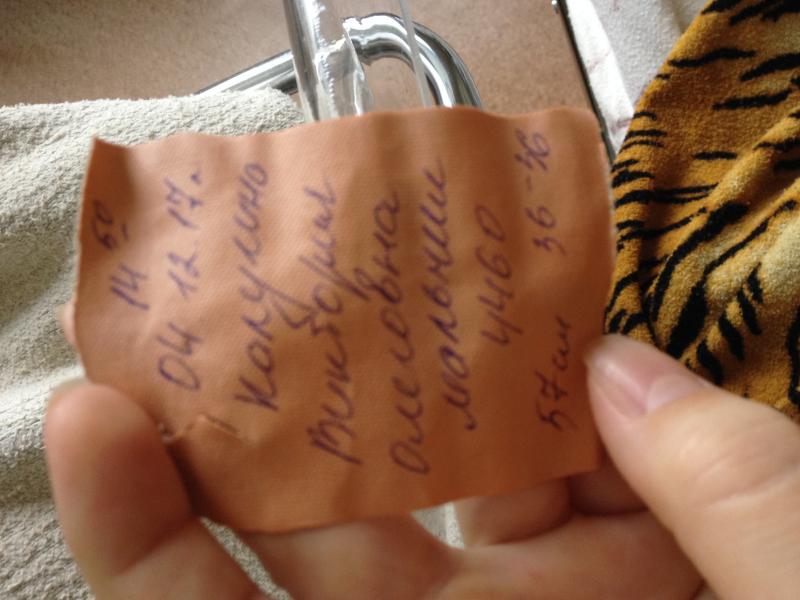 14 50
04 12 17г
Виктория
Олеговна
мальчик
4460
57см 36-36